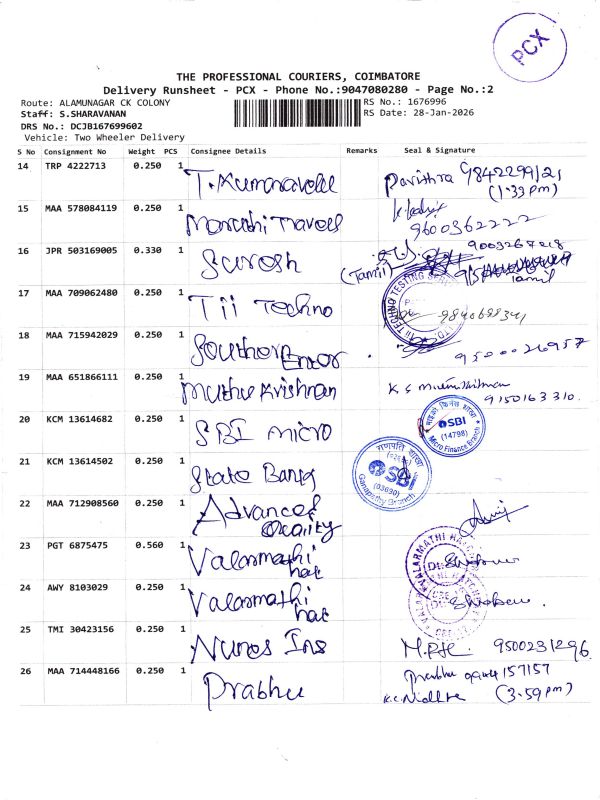 PCX
THE PROFESSIONAL COURIERS, COIMBATORE
Delivery Runsheet - PCX - Phone No.:9047080280 - Page No.:2
Route: ALAMUNAGAR CK COLONY
RS No.: 1676996
Staff: S.SHARAVANAN
RS Date: 28-Jan-2026
DRS No.: DCJB167699602
Vehicle: Two Wheeler Delivery
S No Consignment No Weight PCS Consignee Details Remarks Seal & Signature
14 TRP 4222713 0.250 1 T. Kumaravelu Pavithra 9842299121
(1:33 pm)
15 MAA 578084119 0.250 1 Marathi Travels
9600362222
16 JPR 503169005 0.330 1 Suresh 9003267218
(Tamil) Tamil
17 MAA 709062480 0.250 1 Tii Techno
TII TECHNO TESTING
9840688341
18 MAA 715942029 0.250 1 Southern
9500026957
19 MAA 651866111 0.250 1 Muthu Krishnan K S
9150163310.
20 KCM 13614682 0.250 1 SBI micro
SBI
(14798)
Micro Finance Branch
21 KCM 13614502 0.250 1 State Bank
गणपति शाखा
SBI
(03690)
Ganapathy Branch
22 MAA 712908560 0.250 1 Advanced
Quality
23 PGT 6875475 0.560 1 Valarmathi
hat
VALARMATHI
24 AWY 8103029 0.250 1 Valarmathi
hat
25 TMI 30423156 0.250 1 Nunes Ins 9500231296
26 MAA 714448166 0.250 1 Prabhu Prabhu
K.C. (3:59 pm)